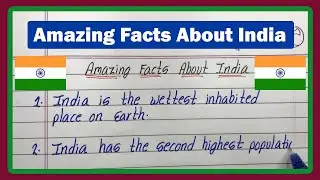 Amazing Facts About India
Amazing Facts About India
1. India is the wettest inhabited
place on Earth.
2. India has the second highest populati